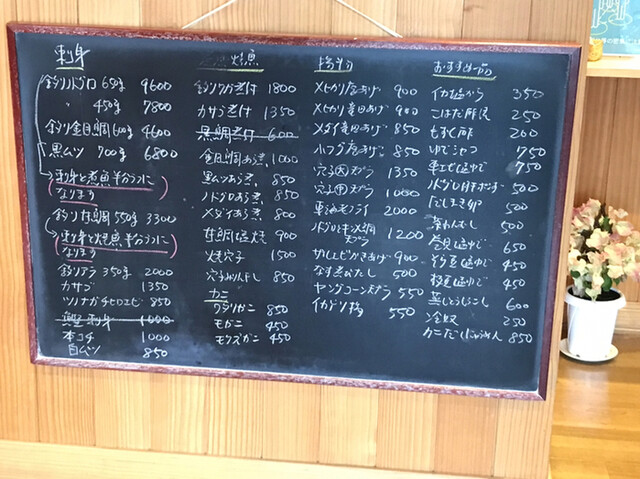 刺身
釣りノドグロ 650g 9600
〃 450g 7800
釣り金目鯛 600g 4600
黒ムツ 700g 6800
刺身と煮魚半分づつに
なります
釣り真鯛 550g 3300
刺身と焼魚半分づつに
なります
釣りアラ 350g 2000
カサゴ 1350
ツノナガチヒロエビ 850
真鯵刺身 1000
本コチ 1000
白ムツ 850
煮魚 焼魚
1800
カサゴ煮付 1350
黒鯛煮付 600
金目鯛あら煮 1000
黒ムツあら煮 850
ノドグロあら煮 850
メダイあら煮 800
真鯛塩焼 900
焼穴子 1500
850
カニ
ワタリガニ 850
モガニ 450
モクズガニ 450
揚物
メヒカリ唐あげ 900
メヒカリ竜田あげ 900
メダイ竜田あげ 850
小フグ唐あげ 850
穴子天プラ 1350
穴子天プラ 1000
車海老フライ 2000
天プラ 1200
サクラエビかきあげ 900
なす煮びたし 500
ヤングコーン天プラ 550
イカゲソ揚 550
おすすめ一品
イカ塩から 350
こはだ酢 250
もずく酢 200
ゆでシャコ 750
車エビ塩ゆで 750
ノドグロ肝ポン酢 500
だしまき卵 500
茶わんむし 500
塩ゆで 650
塩ゆで 450
枝豆塩ゆで 450
600
冷奴 250
カニだし 850